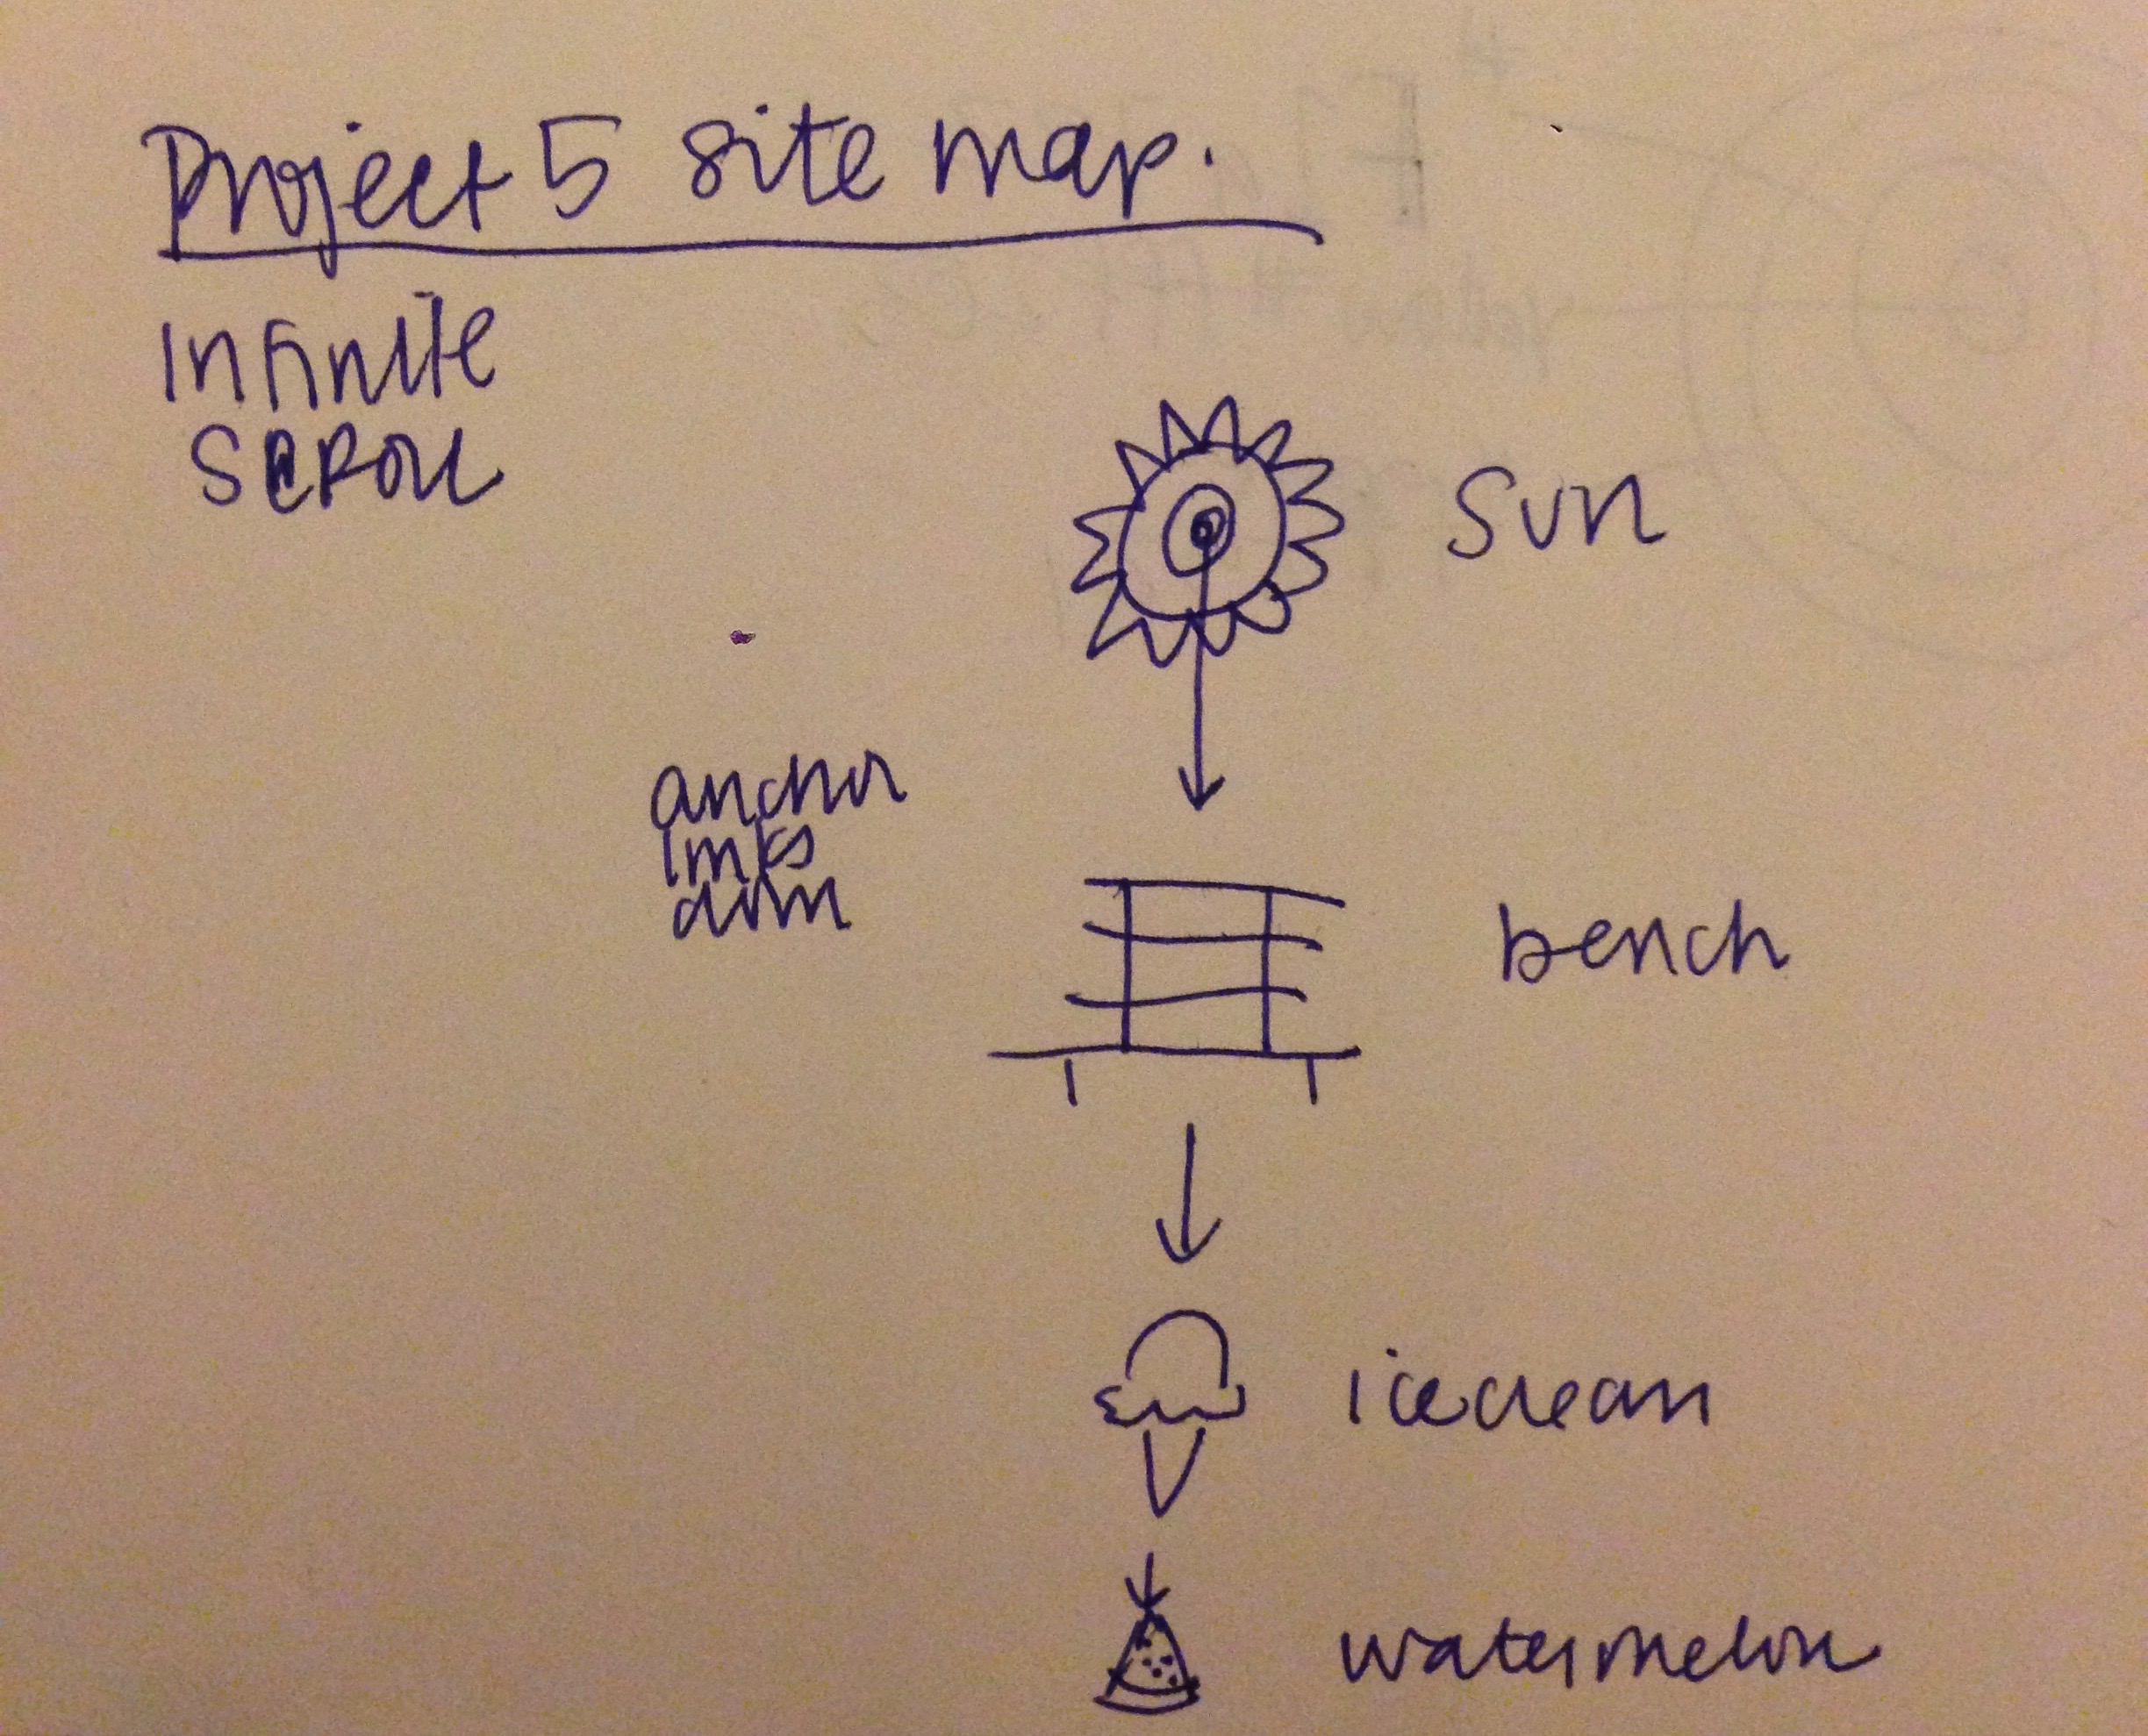 Project 5 site map.
Infinite
Scroll
sun
anchor
links
down
bench
icecream
watermelon